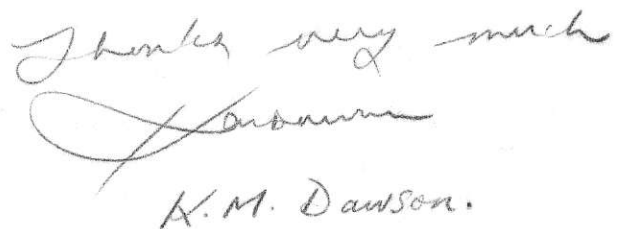 Thanks very much
K.M. Dawson.